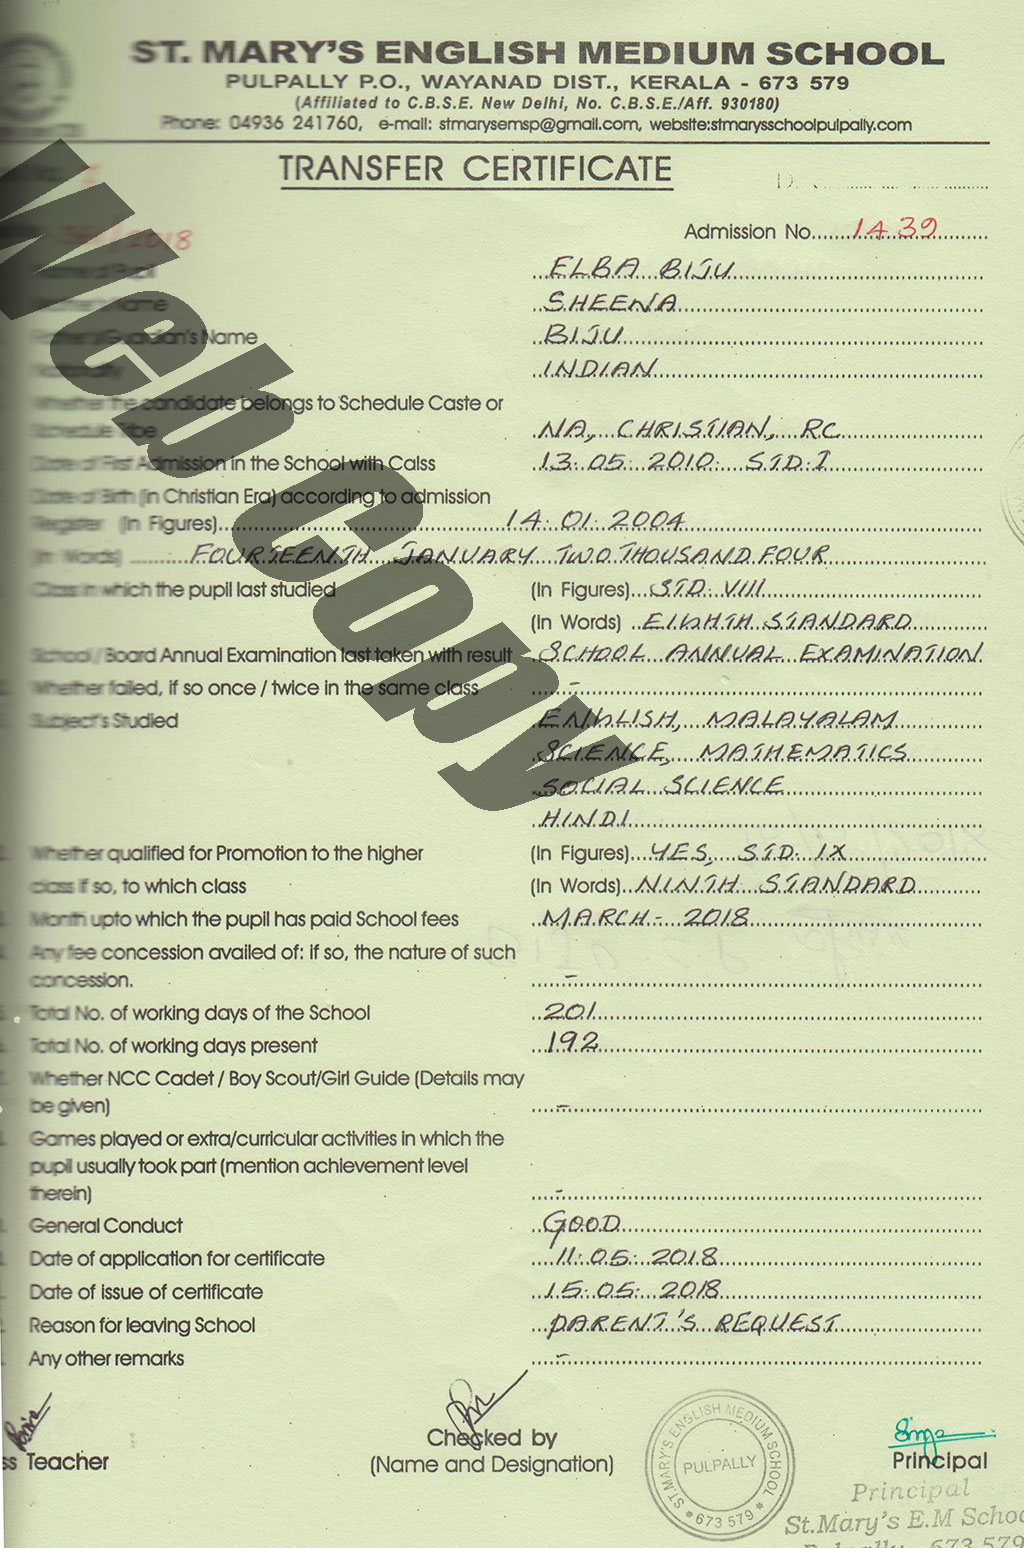 ST. MARY'S ENGLISH MEDIUM SCHOOL
PULPALLY P.O., WAYANAD DIST., KERALA - 673 579
(Affiliated to C.B.S.E. New Delhi, No. C.B.S.E./Aff. 930180)
Phone: 04936 241760, e-mail: stmarysemsp@gmail.com, website:stmarysschoolpulpally.com
TRANSFER CERTIFICATE
Admission No. 1439
/2018
Name of Pupil ELBA BIJU
Mother's Name SHEENA
Father's/Guardian's Name BIJU
Nationality INDIAN
Whether the candidate belongs to Schedule Caste or
Schedule Tribe NA, CHRISTIAN, RC
Date of First Admission in the School with Calss 13.05.2010. STD.I
Date of Birth (in Christian Era) according to admission
Register (In Figures) 14.01.2004
(In Words) FOURTEENTH JANUARY TWO THOUSAND FOUR
Class in which the pupil last studied (In Figures) STD. VIII
(In Words) EIGHTH STANDARD
School / Board Annual Examination last taken with result SCHOOL ANNUAL EXAMINATION
Whether failed, if so once / twice in the same class -
Subject's Studied ENGLISH, MALAYALAM
SCIENCE, MATHEMATICS
SOCIAL SCIENCE
HINDI
Whether qualified for Promotion to the higher (In Figures) YES, STD. IX
class if so, to which class (In Words) NINTH STANDARD
Month upto which the pupil has paid School fees MARCH - 2018
Any fee concession availed of: if so, the nature of such
concession. -
Total No. of working days of the School 201
Total No. of working days present 192
Whether NCC Cadet / Boy Scout/Girl Guide (Details may
be given) -
Games played or extra/curricular activities in which the
pupil usually took part (mention achievement level
therein) -
General Conduct GOOD
Date of application for certificate 11.05.2018
Date of issue of certificate 15.05.2018
Reason for leaving School PARENT'S REQUEST
Any other remarks -
Web Copy
ss Teacher
Checked by
(Name and Designation)
ST.MARY'S ENGLISH MEDIUM SCHOOL
PULPALLY
* 673 579 *
Principal
Principal
St.Mary's E.M Schoo
Pulpally - 673 579